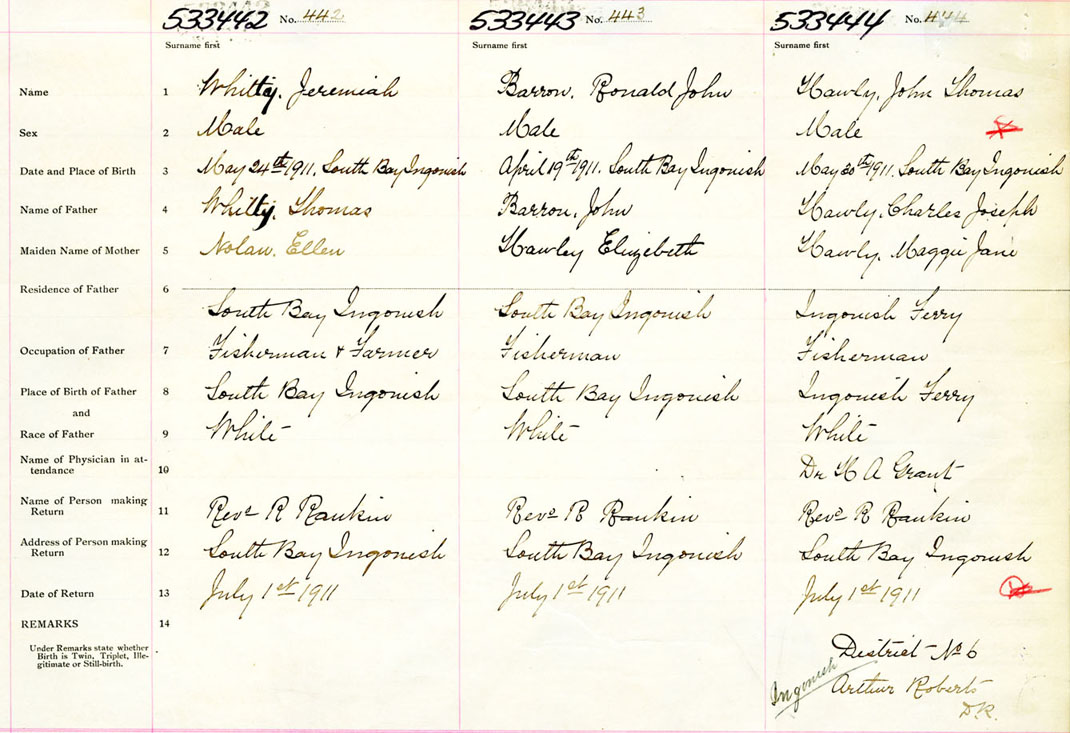 533442 No. 442 533443 No. 443 533444 No. 444
Surname first Surname first Surname first
Name 1 Whitty, Jeremiah Barron, Ronald John Hawly, John Thomas
Sex 2 Male Male Male
Date and Place of Birth 3 May 24th 1911, South Bay Ingonish April 19th 1911, South Bay Ingonish May 30th 1911, South Bay Ingonish
Name of Father 4 Whitty, Thomas Barron, John Hawly, Charles Joseph
Maiden Name of Mother 5 Nolan, Ellen Hawley Elizebeth Hawly, Maggie Jane
Residence of Father 6
South Bay Ingonish South Bay Ingonish Ingonish Ferry
Occupation of Father 7 Fisherman & Farmer Fisherman Fisherman
Place of Birth of Father 8 South Bay Ingonish South Bay Ingonish Ingonish Ferry
and
Race of Father 9 White White White
Name of Physician in at-
tendance 10 Dr H A Grant
Name of Person making
Return 11 Revd R Rankin Revd R Rankin Revd R Rankin
Address of Person making
Return 12 South Bay Ingonish South Bay Ingonish South Bay Ingonish
Date of Return 13 July 1st 1911 July 1st 1911 July 1st 1911
REMARKS 14
Under Remarks state whether
Birth is Twin, Triplet, Ille-
gitimate or Still-birth.
District No 6
Ingonish Arthur Roberts
D.R.